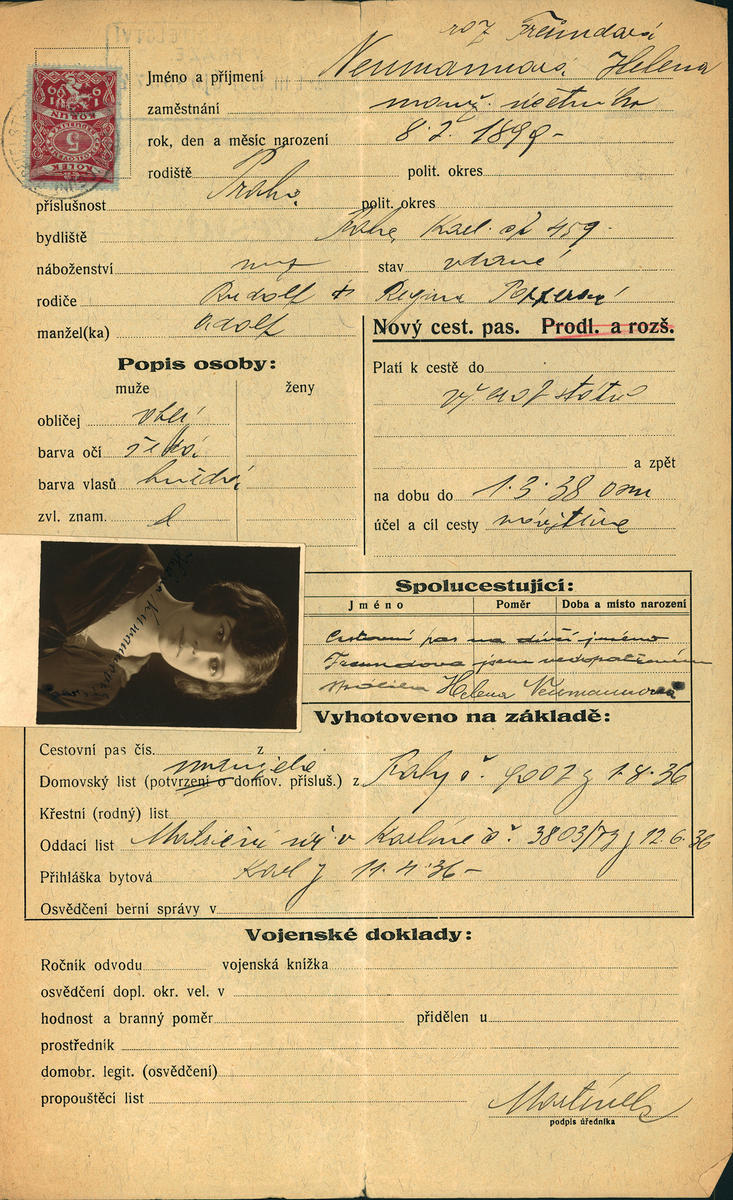 roz Freundová
Jméno a příjmení Neumannová Helena
zaměstnání manž. účetního
rok, den a měsíc narození 8. 2. 1899-
rodiště Praha polit. okres
příslušnost polit. okres
bydliště Praha, Karl. čp 459.
náboženství stav vdaná
rodiče Rudolf Regina
manžel(ka) Adolf
Nový cest. pas. Prodl. a rozš.
Popis osoby:
muže ženy
obličej
barva očí šedá
barva vlasů hnědá
zvl. znam.
Platí k cestě do
a zpět
na dobu do 1·3·38
účel a cíl cesty návštěva
Spolucestující:
Jméno Poměr Doba a místo narození
Cestovní pas na dívčí jméno
Freundova jsem nedopatřením
Helena Neumannová
Vyhotoveno na základě:
Cestovní pas čís. z
Domovský list (potvrzení o domov. přísluš.) z Prahy č. z 1·8·36
Křestní (rodný) list
Oddací list v Karlíně č. 3803/73 z 12.6.36
Přihláška bytová Karl z 11·4·36-
Osvědčení berní správy v
Vojenské doklady:
Ročník odvodu vojenská knížka
osvědčení dopl. okr. vel. v
hodnost a branný poměr přidělen u
prostředník
domobr. legit. (osvědčení)
propouštěcí list
Martínek
podpis úředníka
KOLEK
5
KORUN
1919